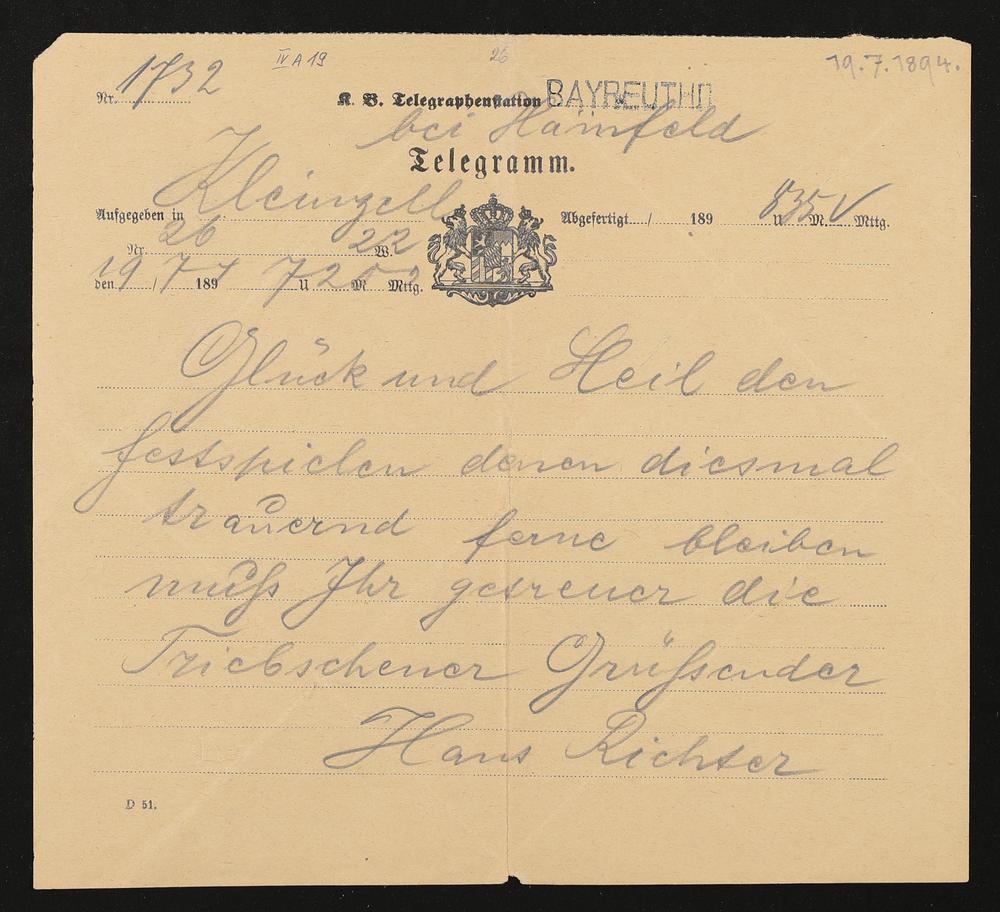 IV A 19
26
19.7.1894.
Nr. 1732
K. B. Telegraphenstation BAYREUTH
bei Hainfeld
Telegramm.
Aufgegeben in Kleinzell
Abgefertigt / 189 8 U 35 M V Mttg.
Nr. 26 22 W.
den 19 / 7 189 7 U M Mttg.
Glück und Heil den
festspielen denen diesmal
trauernd ferne bleiben
muß Ihr getreuer die
Triebschener Grüßender
Hans Richter
D 51.